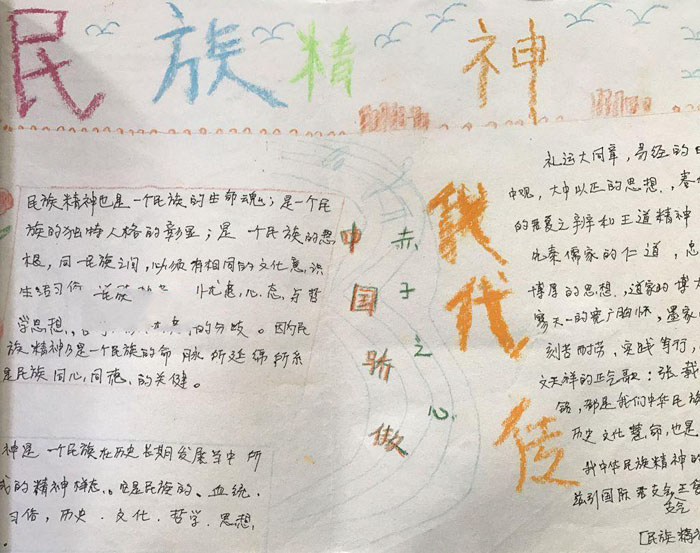 民族精神
民族精神也是一个民族的生命魂；是一个民
族的独特人格的彰显；是一个民族的思
根，同一民族之间，必须有相同的文化意识
生活习俗 忧患，心态，与哲
学思想， 的分歧。因为民
族精神乃是一个民族的命脉所延绵所系
是民族同心，同德，的关健。
神是一个民族在历史长期发展当中所
成的精神 它是民族的、血统、
习俗，历史、文化、哲学、思想，
中国骄傲
赤子之心
我代传
礼运大同章，易经的
中观，大中以正的思想，春
的 和王道精神
先秦儒家的仁道，忠
博厚的思想，道家的博大
的宽广胸怀，墨家
刻苦耐劳，实践笃行，
文天祥的正气歌：张载
铭，都是我们中华民族
历史文化慧命，也是
我中华民族精神的
[民族精